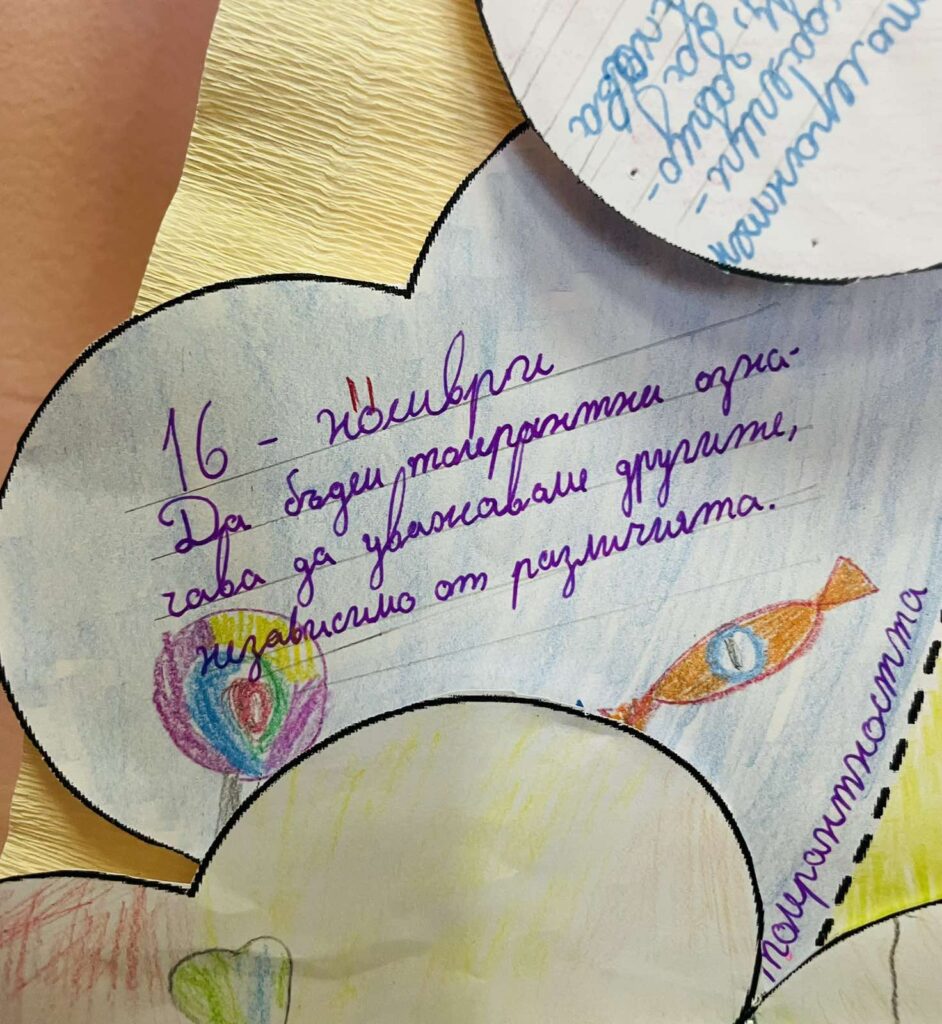 16 - ноември
Да бъдем толерантни озна-
чава да уважаваме другите,
независимо от различията.
толерантността